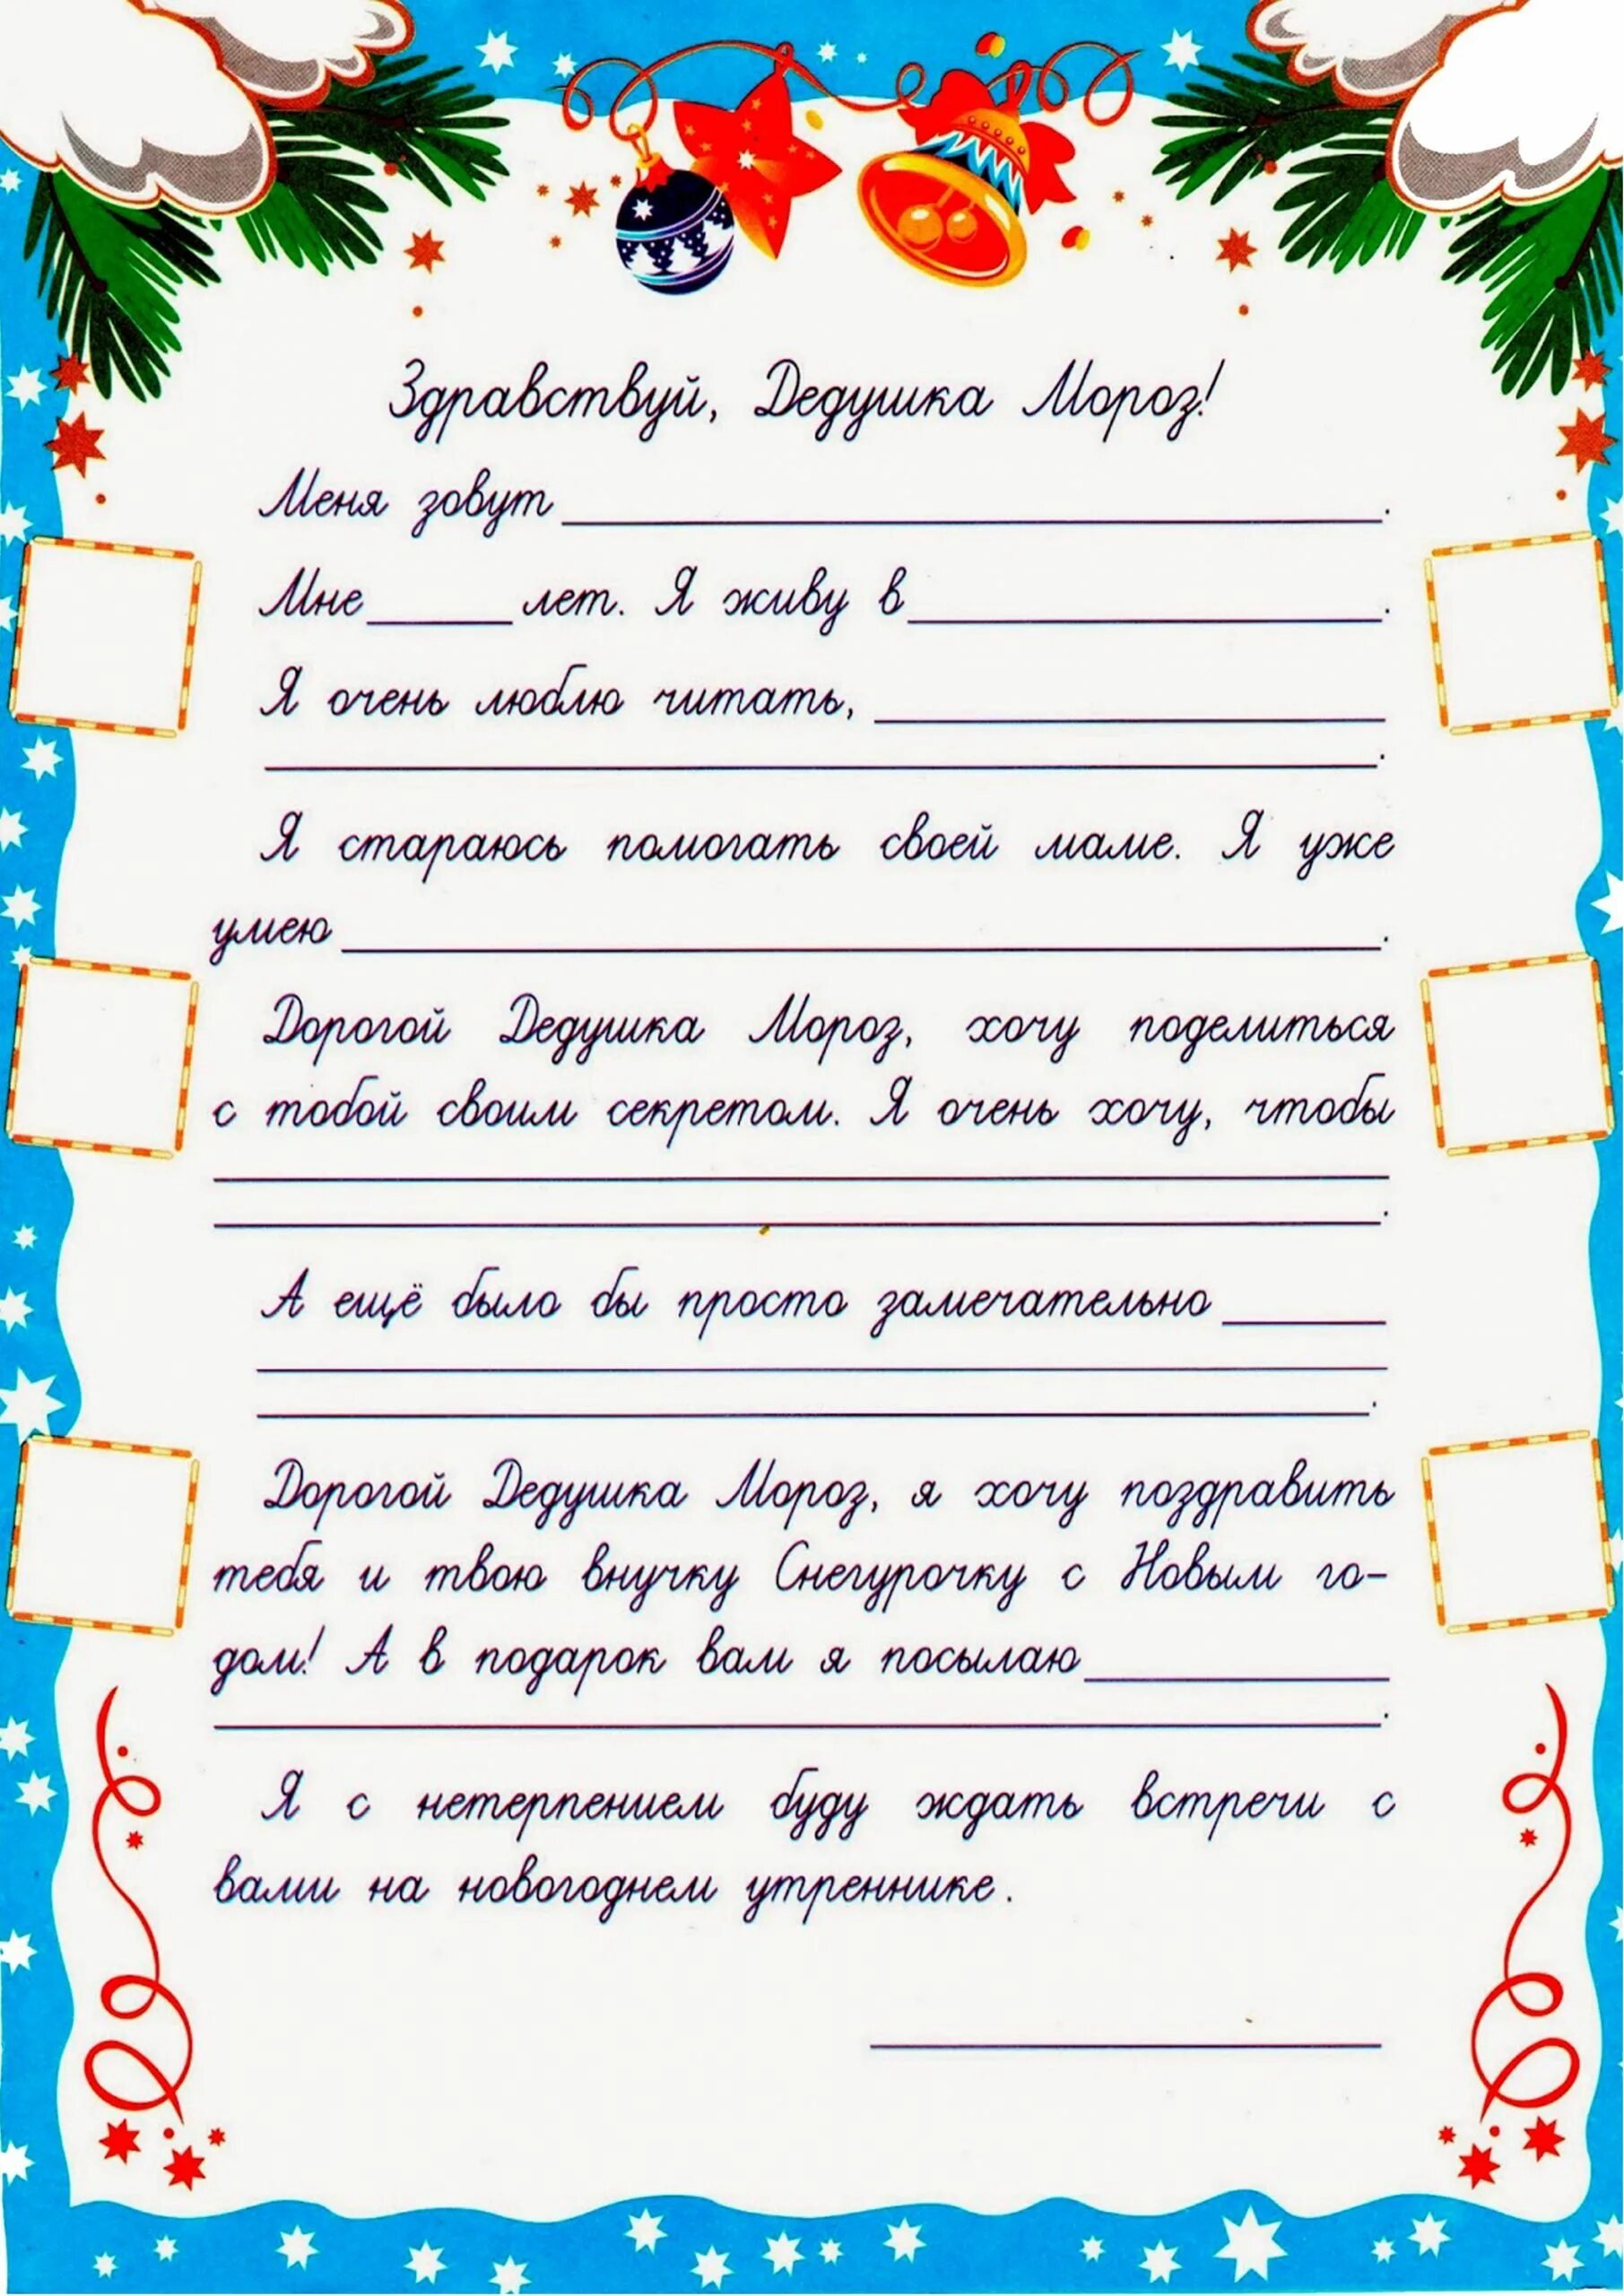 Здравствуй, Дедушка Мороз!
Меня зовут ____________________.
Мне ______ лет. Я живу в ____________________.
Я очень люблю читать, ____________________
____________________.
Я стараюсь помогать своей маме. Я уже
умею ____________________.
Дорогой Дедушка Мороз, хочу поделиться
с тобой своим секретом. Я очень хочу, чтобы
____________________
____________________.
А ещё было бы просто замечательно ______
____________________
____________________.
Дорогой Дедушка Мороз, я хочу поздравить
тебя и твою внучку Снегурочку с Новым го-
дом! А в подарок вам я посылаю ____________
____________________.
Я с нетерпением буду ждать встречи с
вами на новогоднем утреннике.
____________________